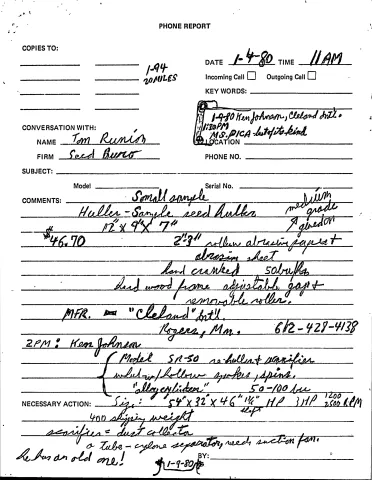 PHONE REPORT
COPIES TO:
1-94
20 MILES
DATE 1-4-80 TIME 11 AM
Incoming Call Outgoing Call
KEY WORDS:
1-9-80 Ken Johnson, Cleland Int'l.
1:30 PM
MS. PICA
CONVERSATION WITH:
LOCATION
NAME Tom Runion
FIRM Seed Buro
PHONE NO.
SUBJECT:
Model Serial No.
COMMENTS: Small sample
Huller - Sample seed huller
medium
grade
12" X 9" X 7"
$46.70 2"-3" rollers abrasive
abrasive sheet
hand cranked 50
hard wood frame adjustable gap &
removable roller.
MFR. "Cleland" Int'l.
Rogers, Mn. 612-428-4138
2 PM: Ken Johnson
Model SR-50 rehuller & scarifier
hollow spokes, spins.
"alloy cylinder" 50-100
NECESSARY ACTION: Size: 54" X 32" X 46" 1½ HP 3HP 1200
2500 RPM
400 shipping weight
scarifier = dust collector
a tube-cyclone separator, needs suction fan.
he has an old one! BY:
1-9-80